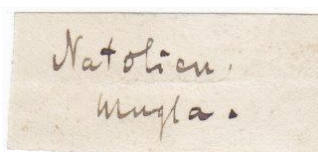 Natolien.
Mugla.